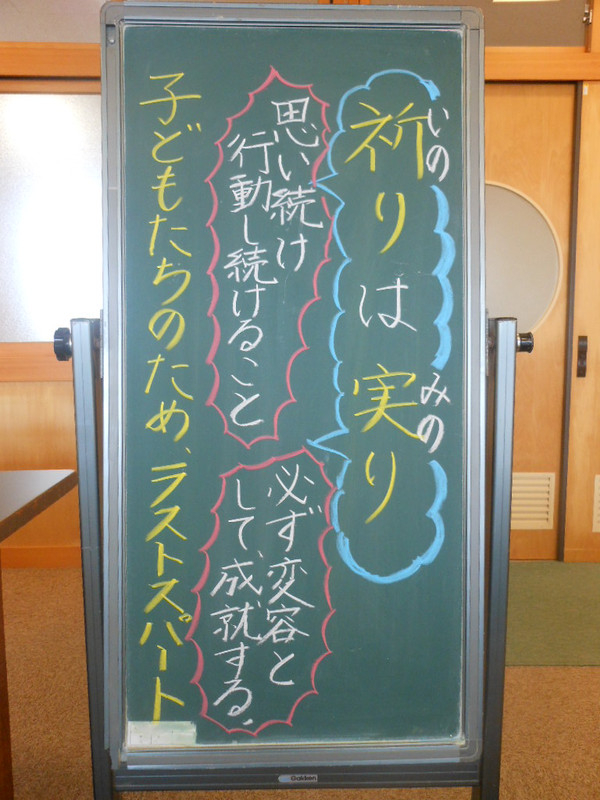 祈りは実り
いの
みの
思い続け
行動し続けること
必ず変容と
して、成就する、
子どもたちのため、ラストスパート
Gakken